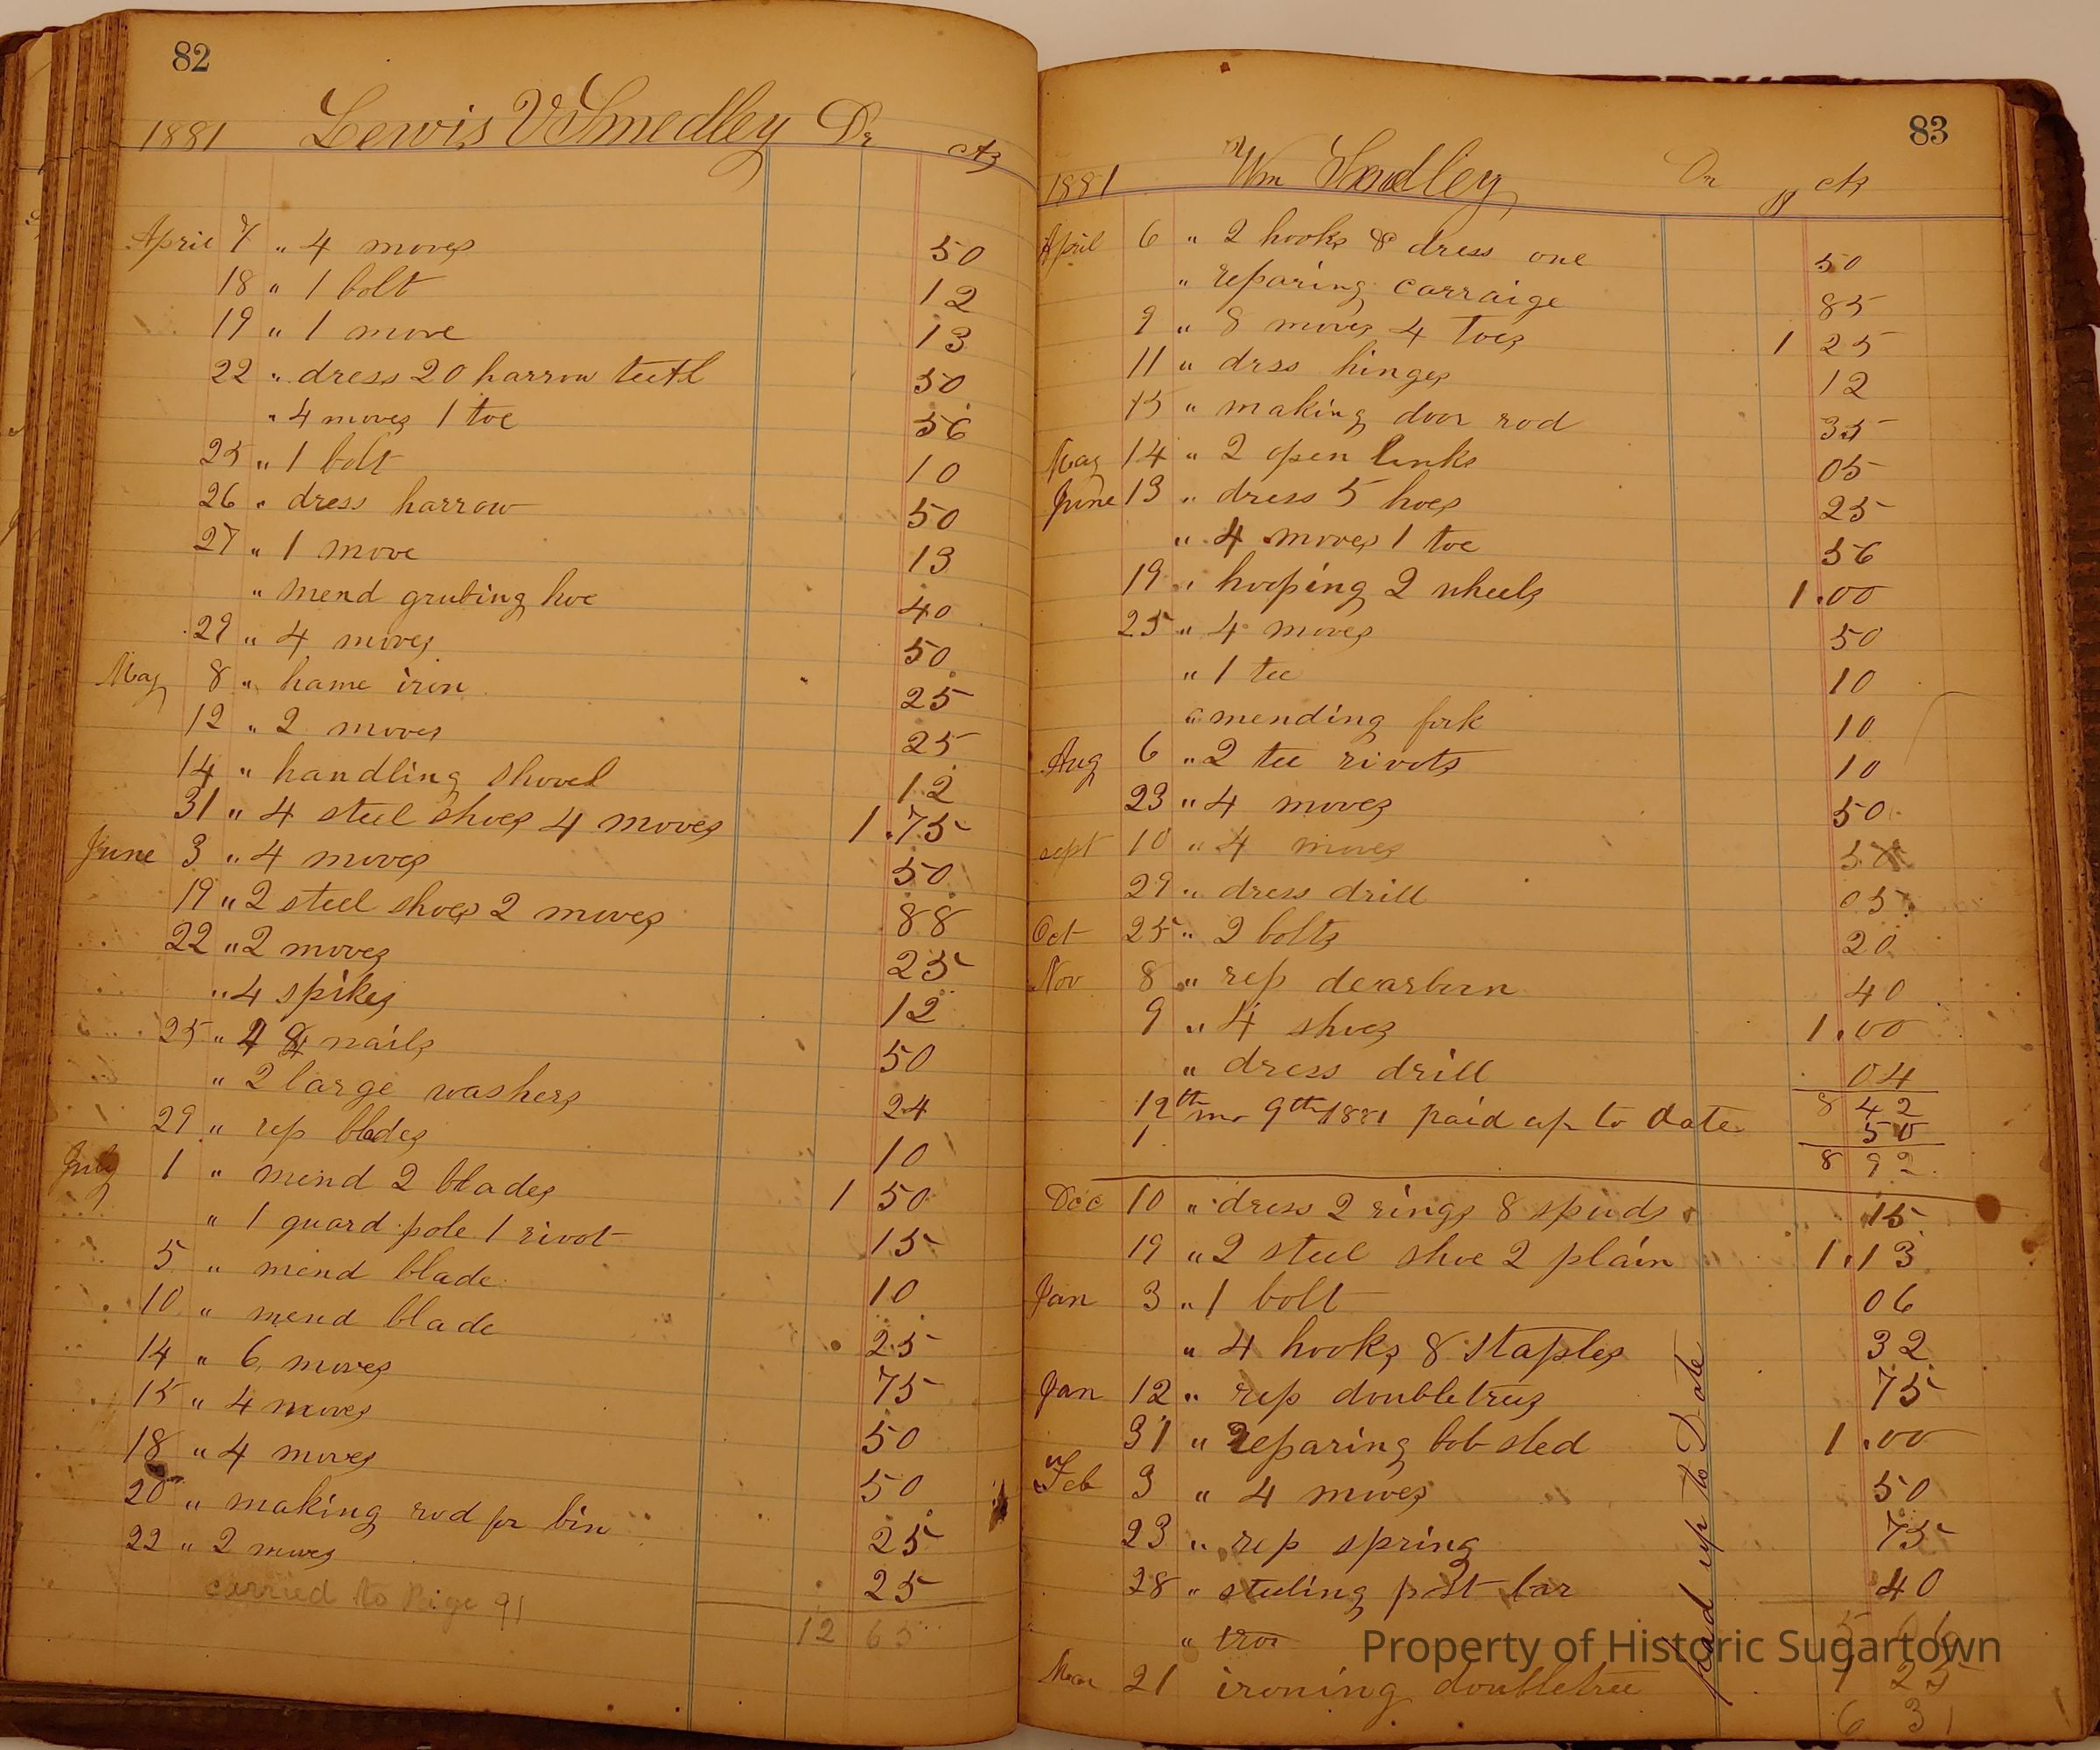 82
1881 Lewis V Smedley Dr cts
April 7 " 4 moves 50
18 " 1 bolt 12
19 " 1 move 13
22 " dress 20 harrow teeth 50
" 4 moves 1 toe 56
25 " 1 bolt 10
26 " dress harrow 50
27 " 1 move 13
" mend grubing hoe 40
29 " 4 moves 50
May 8 " hame iron 25
12 " 2 moves 25
14 " handling shovel 12
31 " 4 steel shoes 4 moves 1.75
June 3 " 4 moves 50
19 " 2 steel shoes 2 moves 88
22 " 2 moves 25
" 4 spikes 12
25 " nails 50
" 2 large washers 24
29 " rep blades 10
July 1 " mend 2 blades 1 50
" 1 guard pole 1 rivot 15
5 " mend blade 10
10 " mend blade 25
14 " 6 moves 75
15 " 4 moves 50
18 " 4 moves 50
20 " making rod for bin 25
22 " 2 moves 25
carried to Page 91
12 65
83
1881 Wm Smedley Dr $ cts
April 6 " 2 hooks & dress one 50
" reparing carraige 85
9 " 8 moves 4 toes 1 25
11 " drss hinges 12
15 " making door rod 35
May 14 " 2 open links 05
June 13 " dress 5 hoes 25
" 4 moves 1 toe 56
19 " hooping 2 wheels 1.00
25 " 4 moves 50
" 1 tee 10
" mending fork 10
Aug 6 " 2 tee rivots 10
23 " 4 moves 50
sept 10 " 4 moves 50
29 " dress drill 05
Oct 25 " 2 bolts 20
Nov 8 " rep dearborn 40
9 " 4 shoes 1.00
" dress drill 04
8 42
12th mo 9th 1881 paid up to date 50
8 92
Dec 10 " dress 2 rings 8 spuds 15
19 " 2 steel shoe 2 plain 1.13
Jan 3 " 1 bolt 06
" 4 hooks 8 staples 32
Jan 12 " rep doubletrees 75
31 " reparing bob sled 1.00
Feb 3 " 4 moves 50
23 " rep spring 75
28 " steeling post bar 40
" iron 5 06
Mar 21 ironing doubletree 1 25
6 31
paid up to Date
Property of Historic Sugartown